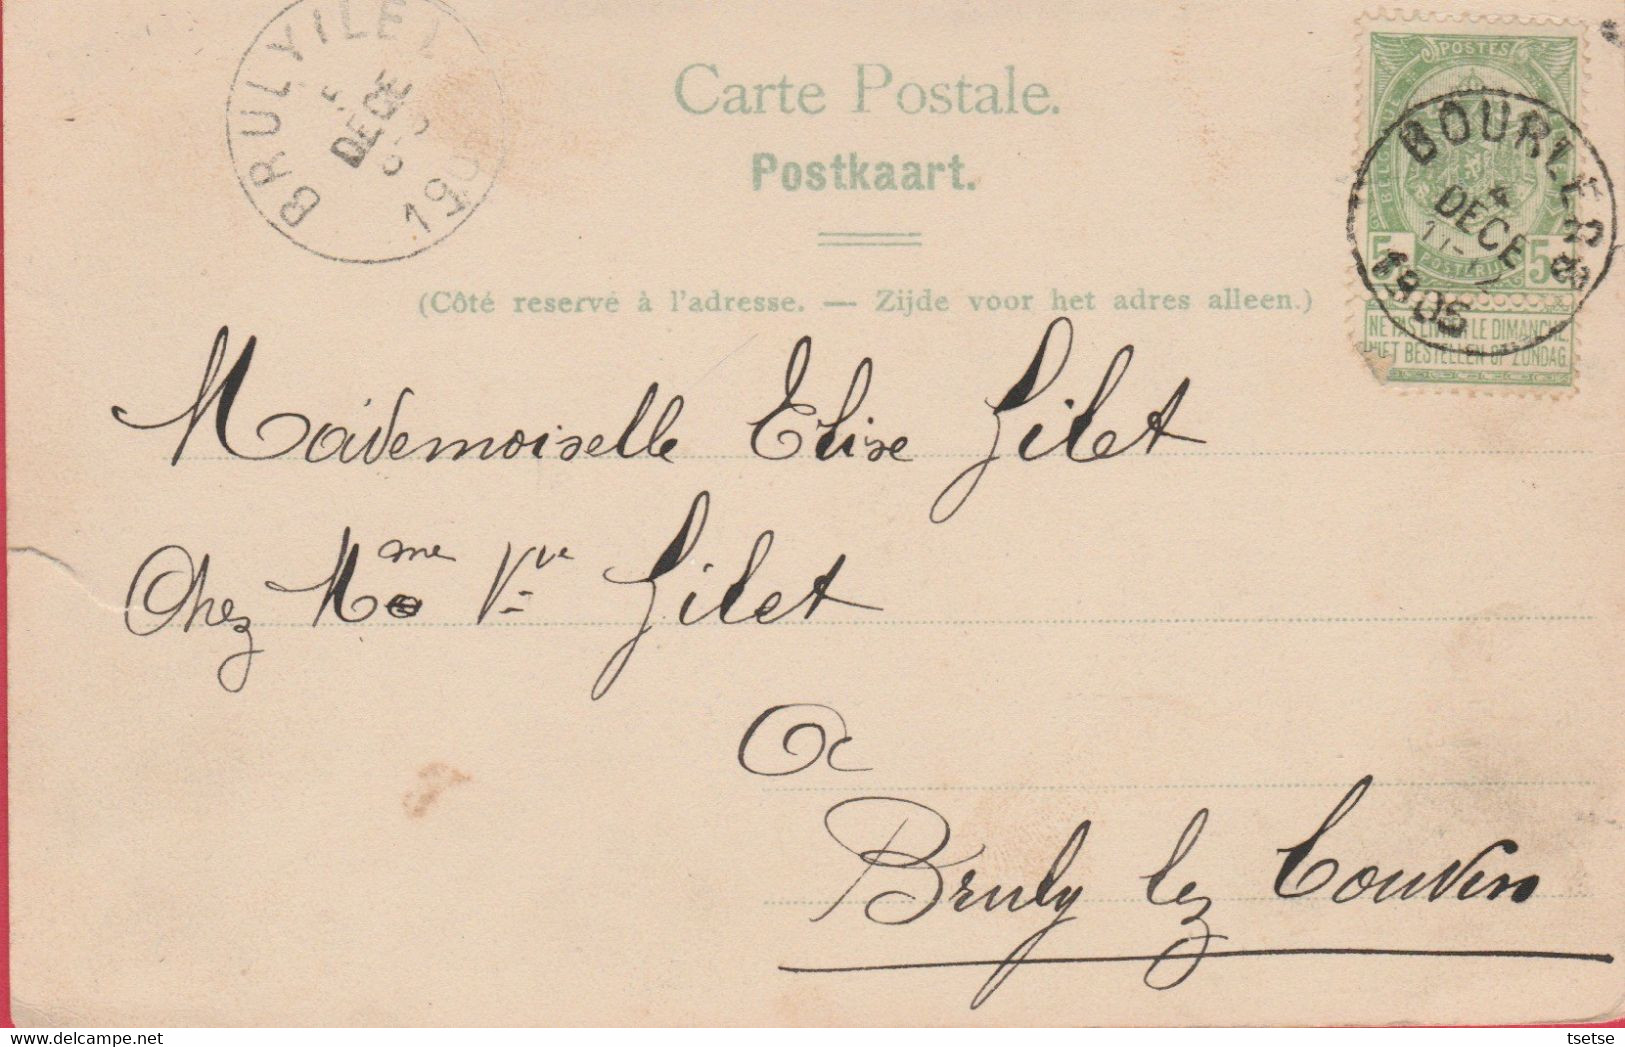 Carte Postale.
Postkaart.
(Côté reservé à l'adresse. — Zijde voor het adres alleen.)
POSTES
BELGIQUE
5 POSTERIJEN 5
NE PAS LIVRER LE DIMANCHE
NIET BESTELLEN OP ZONDAG
BOURLERS
4
DECE
1905
BRULY
5
DECE
190
Mademoiselle Elise Gilet
Chez Mme Vve Gilet
a
Bruly lez Couvin
delcampe.net
tsetse